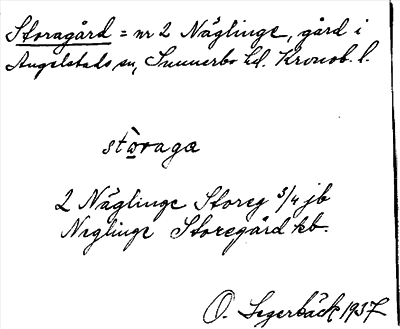 Storagård = nr 2 Näglinge, gård i
Angelstads sn, Sunnerbo hd. Kronob. l.
stòragæ
2 Näglinge Storeg 3/4 jb
Neglinge Storegård kb.
O. Segerbäck 1937